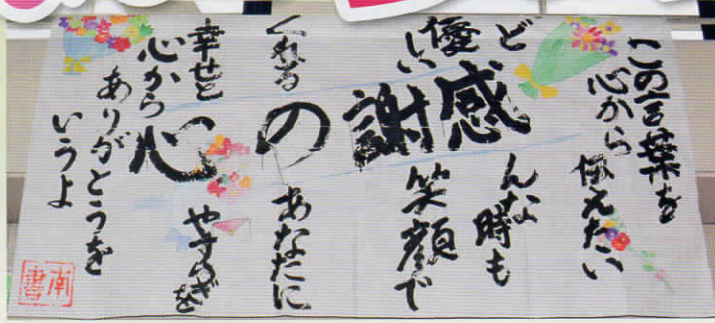 この言葉を
心から伝えたい
感謝の心
どんな時も
優しい笑顔で
くれるあなたに
幸せとやすらぎを
心から
ありがとうを
いうよ
南書